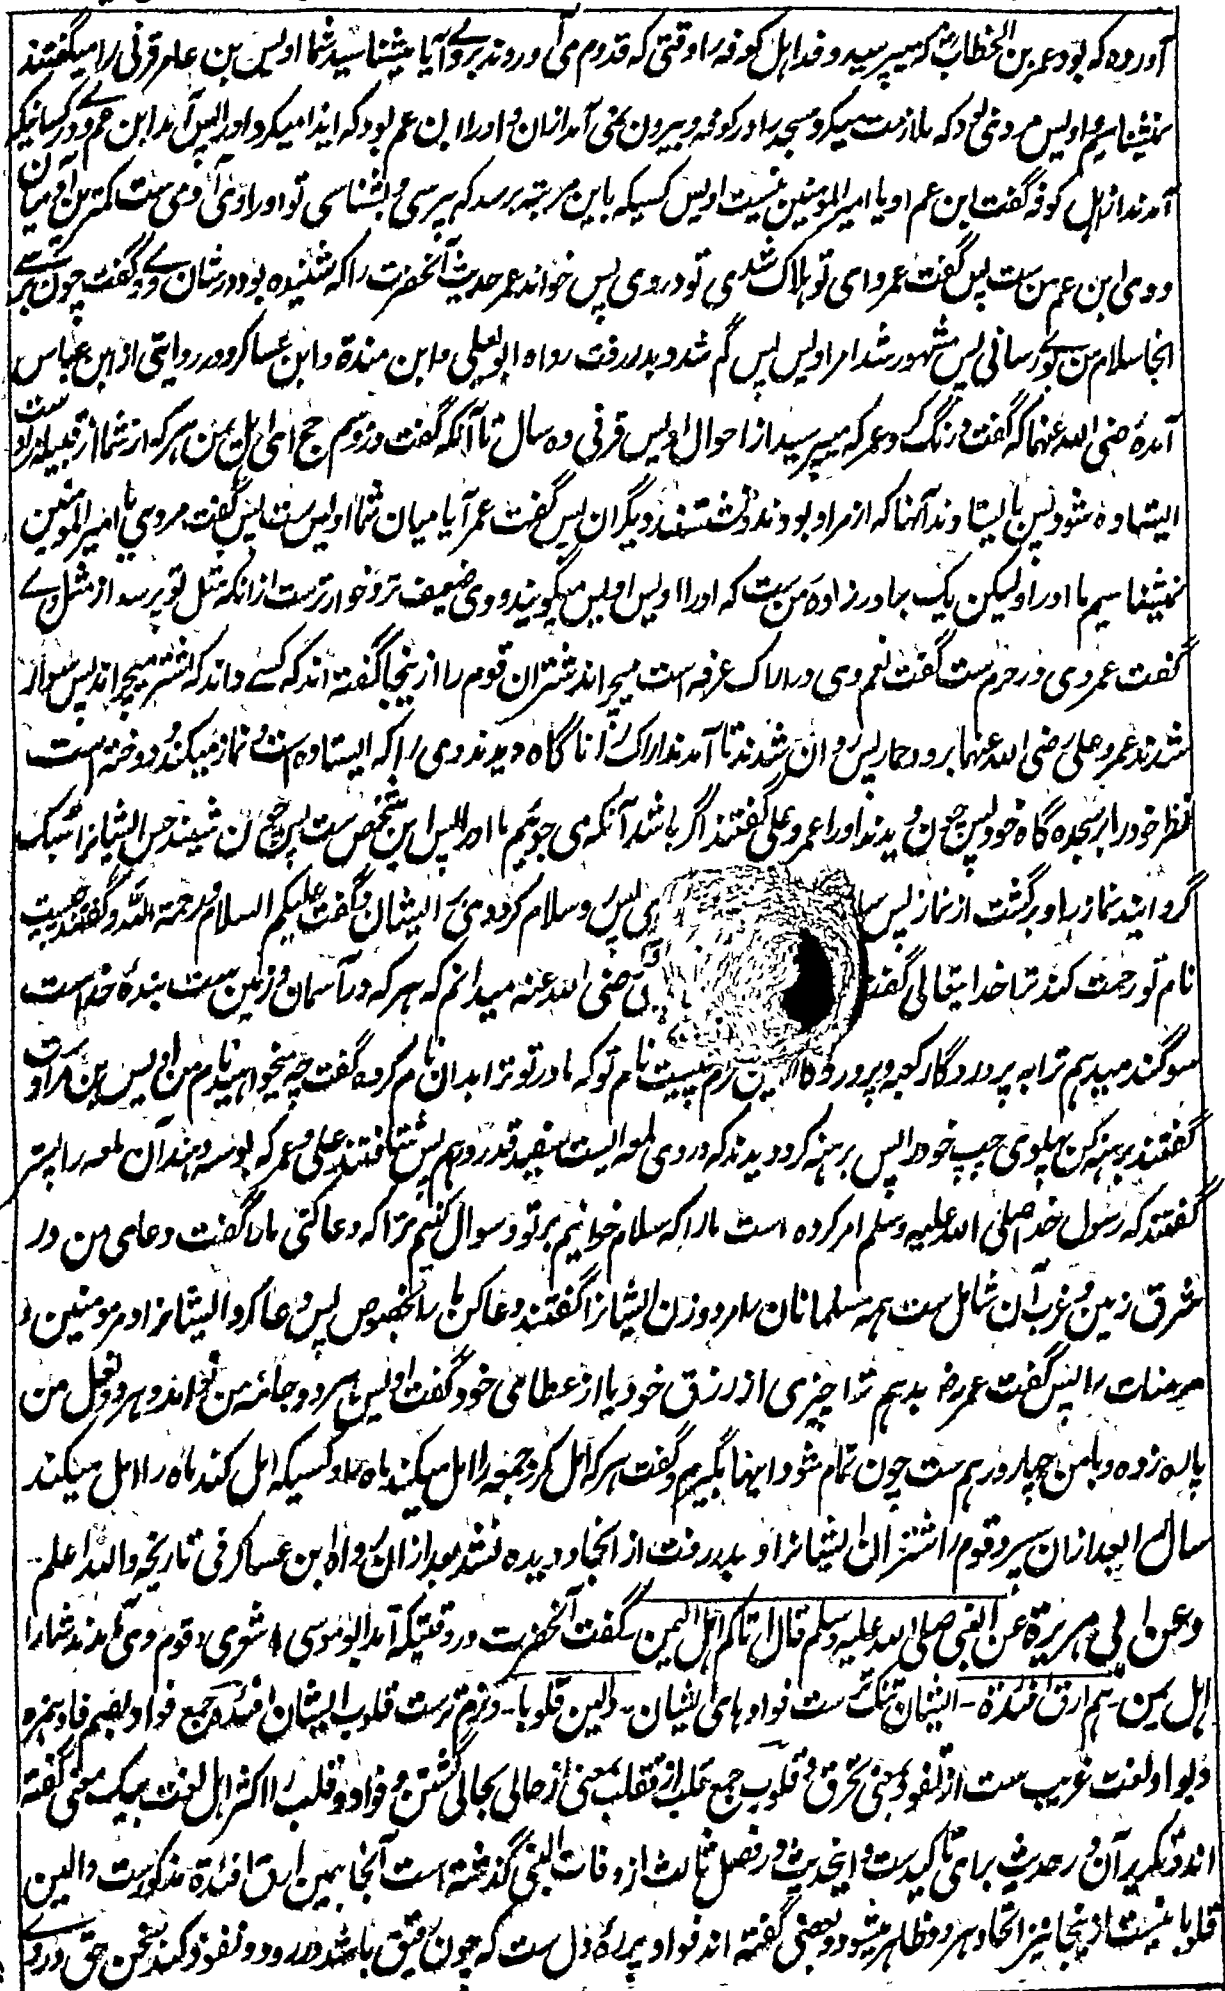 آورده که بود عمر بن الخطاب رض که میپرسید وفد اهل کوفه را وقتی که قدوم می آوردند بر وے آیا میشناسید شما اویس بن عامر قرنی را میگفتند
نمیشناسیم و اویس مردی بود که ملازمت میکرد مسجد را در کوفه و بیرون نمی آمد ازان و او را ابن عم بود که ایذا میکرد او را پس آمد ابن عم وے در کسانیکه
آمدند از اهل کوفه گفت ابن عم او یا امیر المومنین نیست اویس کسیکه باین مرتبه برسد که بپرسی و بشناسی تو او را وی آدمی ست کمترین آدمیان
و وی ابن عم من ست پس گفت عمر وای تو هلاک شدی تو در وی پس خواند عمر حدیث آنحضرت را که شنیده بود در شان وے و گفت چون برسے
انجا سلام من بوے رسانی پس مشهور شد امر اویس پس گم شد و بدر رفت رواه ابو یعلی و ابن مندة و ابن عساکر و در روایتی از ابن عباس
آمده رضی الله عنهما که گفت درنگ کرد عمر که میپرسید از احوال اویس قرنی ده سال تا آنکه گفت در موسم حج ای اهل یمن هر که از شما از قبیله مراد ست
ایستاده شود پس بایستادند آنها که از مراد بودند و نشستند دیگران پس گفت عمر آیا میان شما اویس ست پس گفت مردی یا امیر المومنین
نمیشناسیم ما او را و لیکن یک برادر زاده من ست که او را اویس اویس میگویند و وی ضعیف تر و خوارتر ست از انکه مثل تو پرسد از مثل وے
گفت عمر وی در حرم ست گفت نعم وی در اراک عرفه است میچراند شتران قوم را از ینجا گفته اند که کسے داند که شتر میچراند پس سوار
شدند عمر و علی رضی الله عنهما بر دو حمار پس روان شدند تا آمدند اراک را ناگاه دیدند وی را که ایستاده است و نماز میکند و دوخته است
نظر خود را بر سجده گاه خود پس چون دیدند او را عمر و علی گفتند اگر باشد آنکه می جوئیم ما او را پس این شخص ست پس چون شنید حس ایشانرا سبک
گردانید نماز را و برگشت از نماز پس سلام پس و سلام کردند بر ایشان و گفت علیکم السلام و رحمة الله و گفتند چیست
نام تو رحمت کند ترا خدایتعالی گفت رضی الله عنه میدانم که هر که در آسمان و زمین ست بنده خداست
سوگند میدهم ترا به پروردگار کعبه و پروردگار این حرم چیست نام تو که مادر تو ترا بدان نام کرده گفت چه میخواهید نام من اویس بن مراد ست
گفتند برهنه کن پهلوی چپ خود را پس برهنه کرد دیدند که در وی لمعه ایست سفید قدر درهم پس شتافتند علی و عمر که بوسه دهند آن لمعه را پستر
گفتند که رسول خدا صلی الله علیه وسلم امر کرده است ما را که سلام خوانیم بر تو و سوال کنیم ترا که دعا کنی ما را گفت دعای من در
شرق زمین و غرب آن شامل ست همه مسلمانان را مرد و زن ایشانرا گفتند دعا کن ما را بخصوص پس دعا کرد ایشانرا و مر مومنین و
مومنات را پس گفت عمر رض بدهم ترا چیزی از رزق خود یا از عطای خود گفت اویس هر دو جامه من نواند و هر دو نعل من
پاره زده و با من چهار درهم ست چون تمام شود اینها بگیرم و گفت هر که امل کرد جمعه را امل میکند ماه را و کسیکه امل کند ماه را امل میکند
سال را بعد ازان سپرد قوم را شتران ایشانرا و بدر رفت از انجا و دیده نشد بعد از ان رواه ابن عساکر فی تاریخه والله اعلم۔
وعن ابی هریرة عن النبی صلی الله علیه وسلم قال اتاکم اهل الیمن گفت آنحضرت در وقتیکه آمد ابو موسی اشعری و قوم وی که آمدند شما را
اهل یمن۔ هم ارق افئدة۔ ایشان تنک ست فوادهای ایشان۔ والین قلوبا۔ و نرم تر ست قلوب ایشان افئدة جمع فواد بضم فا و همزه
و بواو لغت غریب ست از تفود بمعنی تحرق و قلوب جمع قلب از تقلب بمعنی از حالی بحالی گشتن و فواد و قلب را اکثر اهل لغت بیک معنی گفته
اند و تکریر آن در حدیث برای تاکید ست و اینحدیث در فصل ثالث از وفات النبی گذشته است آنجا همین ارق افئدة مذکور ست و الین
قلوبا نیست از ینجا نیز اتحاد هر دو ظاهر میشود و بعضی گفته اند فواد پرده دل ست که چون رقیق باشد در رود و نفوذ کند سخن حق در وے